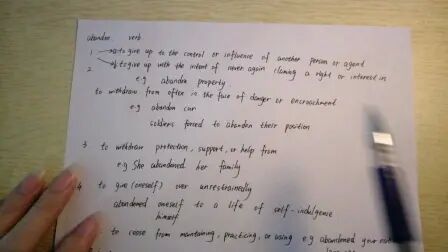 abandon verb
1 → a to give up to the control or influence of another person or agent
→ b to give up with the intent of never again claiming a right or interest in
2 e.g abandon property
to withdraw from often in the face of danger or encroachment
e.g abandon car
soldiers forced to abandon their position
3 to withdraw protection, support, or help from
e.g She abandoned her family
4 to give (oneself) over unrestrainedly
abandoned oneself to a life of self-indulgence
himself
to cease from maintaining, practicing, or using e.g abandoned your